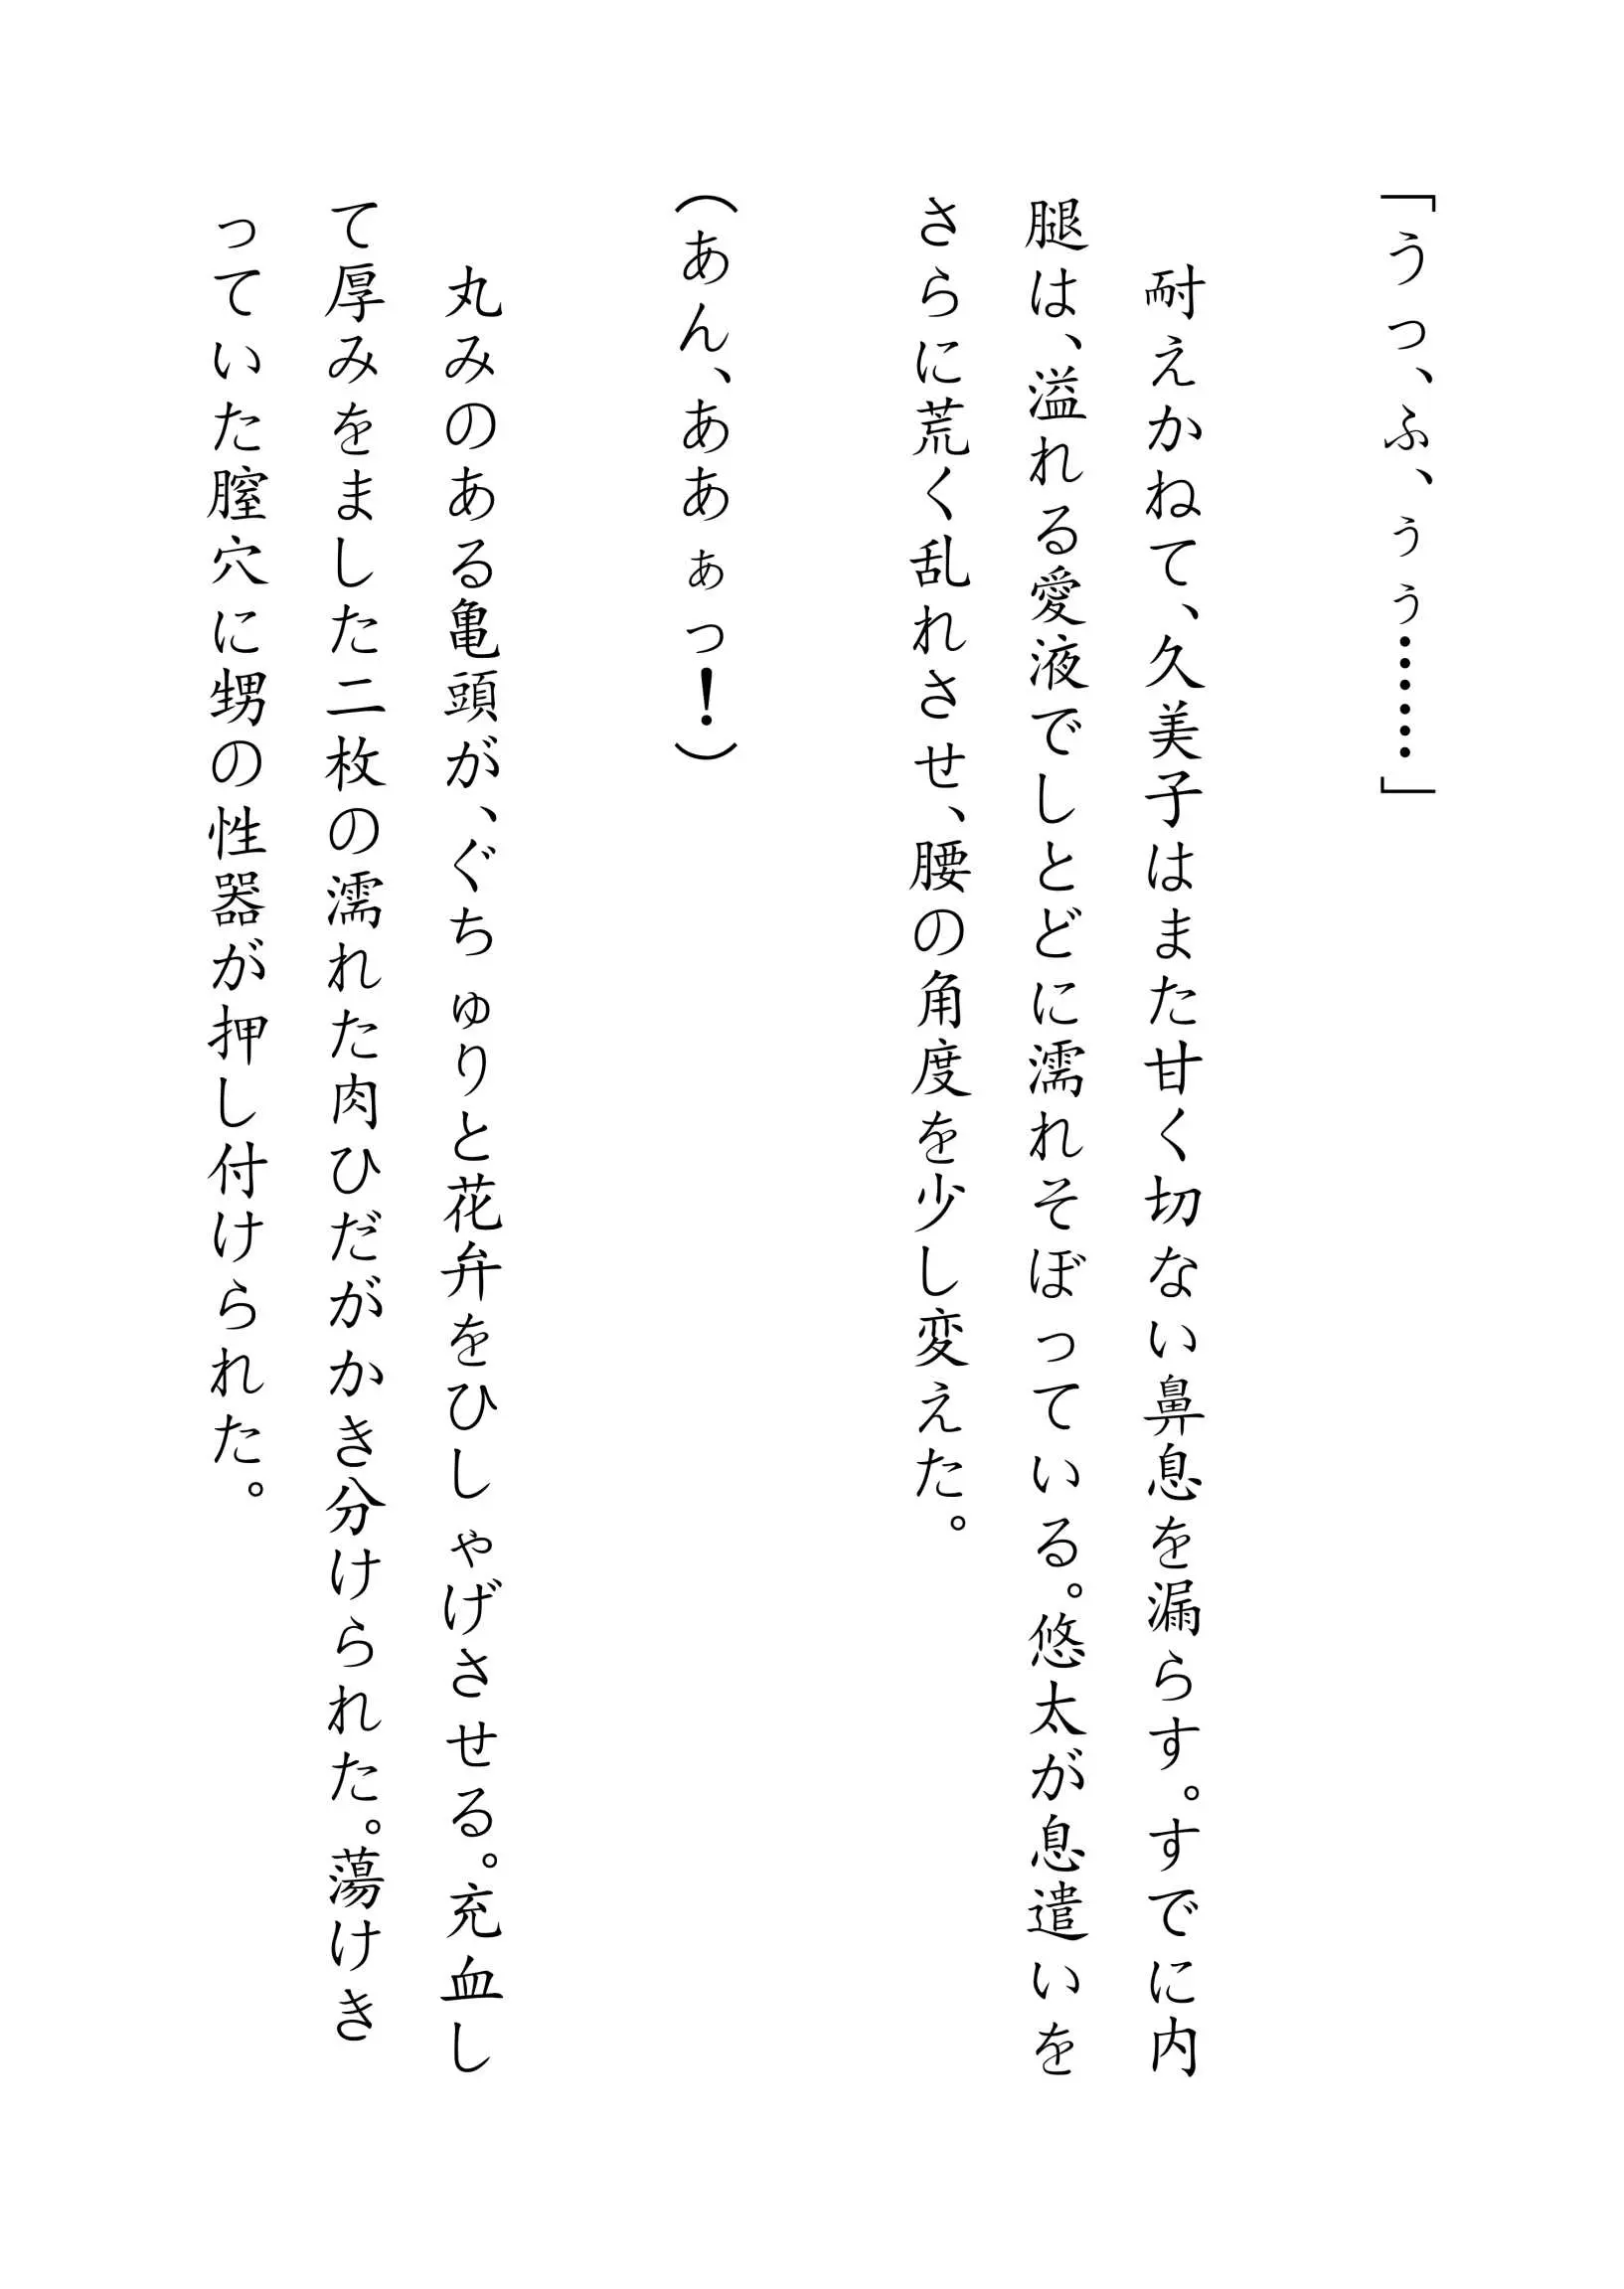 「うっ、ふ、ぅぅ……」
耐えかねて、久美子はまた甘く切ない鼻息を漏らす。すでに内
腿は、溢れる愛液でしとどに濡れそぼっている。悠太が息遣いを
さらに荒く乱れさせ、腰の角度を少し変えた。
（あん、ああぁっ！）
丸みのある亀頭が、ぐちゅりと花弁をひしゃげさせる。充血し
て厚みをました二枚の濡れた肉ひだがかき分けられた。蕩けき
っていた膣穴に甥の性器が押し付けられた。